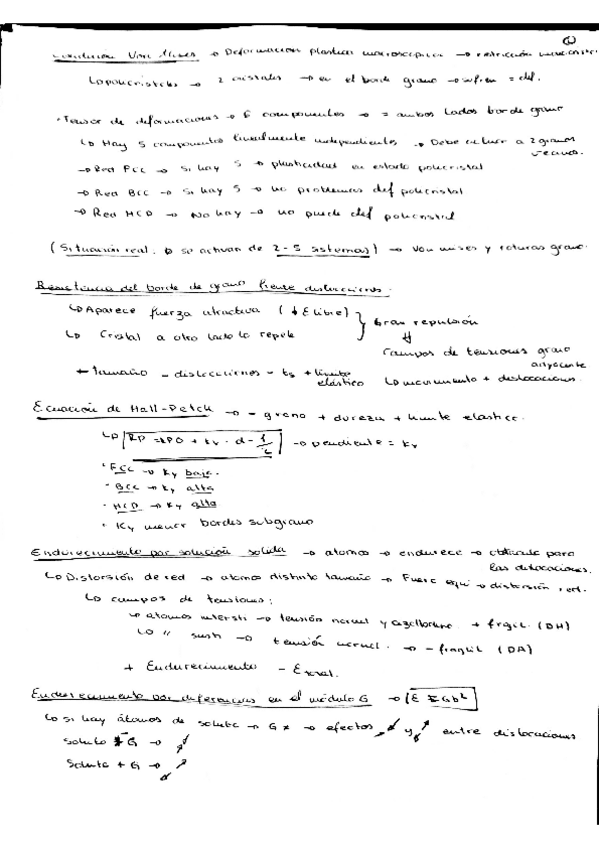 ①
Condición Von Mises → Deformaciones plásticas macroscópica → restricción
↳ policristales → 2 cristales → en el borde grano → sufren = def.
• Tensor de deformaciones → 6 componentes → = ambos lados borde grano
↳ Hay 5 componentes linealmente independientes → Debe a 2 granos vecinos.
→ Red FCC → Si hay 5 → plasticidad en estado policristal
→ Red BCC → Si hay 5 → no problemas def policristal
→ Red HCP → No hay → no puede def policristal
(Situación real: se activan de 2-5 sistemas) → Von mises y roturas grano.
Resistencia del borde de grano frente dislocaciones.
↳ Aparece fuerza atractiva (↓ E libre) } Gran repulsión
↳ Cristal a otro lado lo repele ⇓
Campos de tensiones grano adyacente
tamaño - dislocaciones - + límite elástico ↳ movimiento + dislocaciones.
Ecuación de Hall-Petch → - grano + dureza + límite elástico.
↳ → pendiente = Ky
• FCC → Ky baja.
• BCC → Ky alta
• HCP → Ky alta
• Ky menor bordes subgrano
Endurecimiento por solución solida → atomos → endurece → obstáculo para las dislocaciones.
↳ Distorsión de red → atomos distinto tamaño → Fuera equi → distorsión red.
↳ campos de tensiones:
→ atomos intersti → tensión normal y cizalladura + frágil. (DH)
↳ " susti → tensión normal. → - frágil (DA)
+ Endurecimiento - E
Endurecimiento por diferencias en el módulo G → E = Gb²
↳ si hay átomos de soluto → G ≠ → efectos y entre dislocaciones
Soluto - G →
Soluto + G →